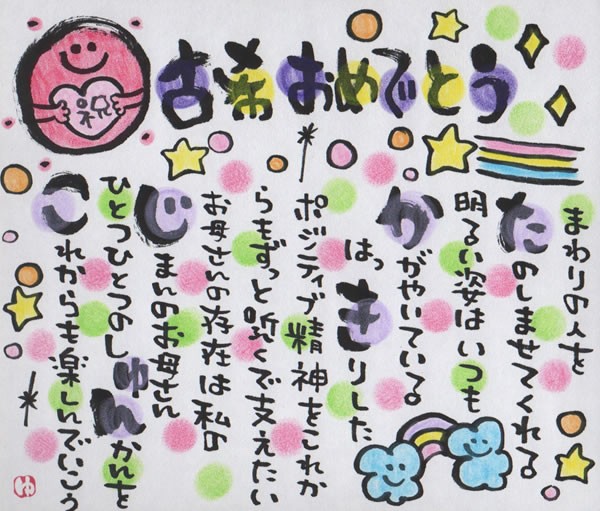 古希おめでとう
祝
まわりの人を
たのしませてくれる
明るい姿はいつも
かがやいている
はっきりした
ポジティブ精神をこれか
らもずっと近くで支えたい
お母さんの存在は私の
じまんのお母さん
ひとつひとつのしゅんかんを
これからも楽しんでいこう
ゆ